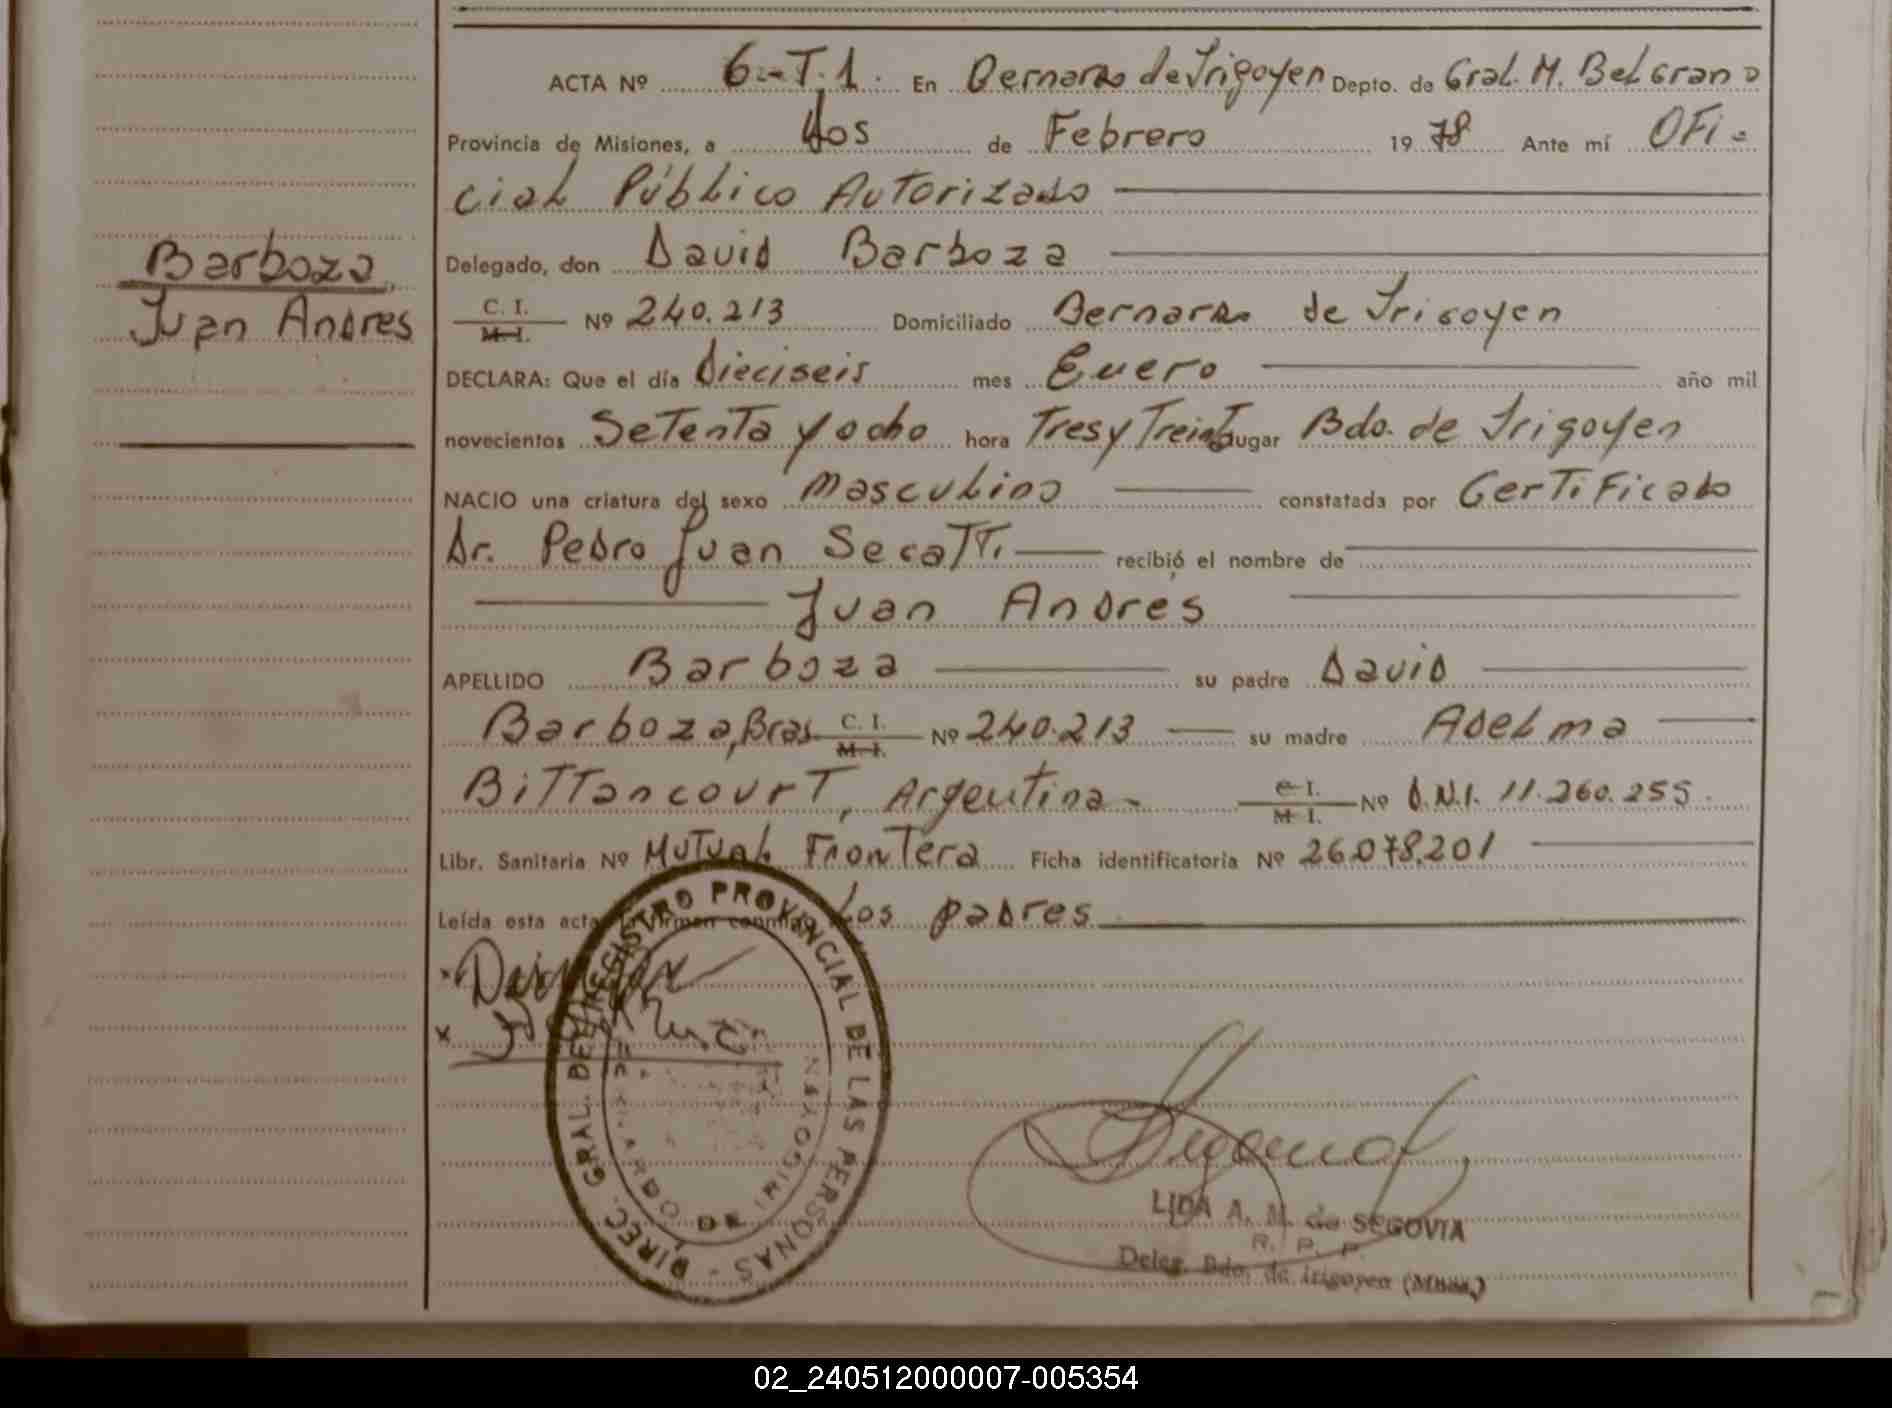 ACTA Nº 6-T.1. En Bernardo de Irigoyen Depto. de Gral. M. Belgrano
Provincia de Misiones, a dos de Febrero 1978 Ante mí Ofi-
cial Público Autorizado
Delegado, don David Barboza
Barboza
C. I. M. I. Nº 240.213 Domiciliado Bernardo de Irigoyen
Juan Andres
DECLARA: Que el día Dieciseis mes Enero año mil
novecientos Setenta y ocho hora Tres y Treinta lugar Bdo. de Irigoyen
NACIO una criatura del sexo masculino constatada por Certificado
Dr. Pedro Juan Secatti recibió el nombre de
Juan Andrés
APELLIDO Barboza su padre David
Barboza, Bras C. I. M. I. Nº 240.213 su madre Adelma
Bittancourt, Argentina- C. I. M. I. Nº D.N.I. 11.260.255.
Libr. Sanitaria Nº Mutual Frontera Ficha identificatoria Nº 26.078.201
Leída esta acta la firman conmigo los padres
DIREC. GRAL. DEL REGISTRO PROVINCIAL DE LAS PERSONAS -
BERNARDO DE IRIGOYEN
LIDA A. M. de SEGOVIA
R. P. P.
Deleg. Bdo. de Irigoyen (Mnes.)
02_240512000007-005354